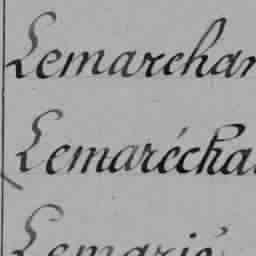 Lemarchan
Lemarécha
Lemarié